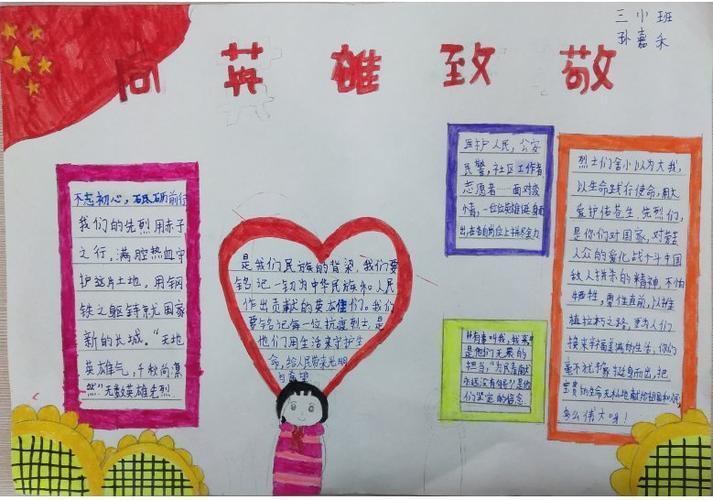 三小班
孙嘉禾
向英雄致敬
不忘初心，砥砺前行
我们的先烈用赤子
之行，满腔热血守
护这片土地，用钢
铁之躯铸就国家
新的长城。“天地
英雄气，千秋尚凛
然”无数英雄先烈
是我们民族的脊梁，我们要
铭记一切为中华民族和人民
作出贡献的英雄们。我们
要铭记每一位抗疫烈士，是
他们用生活来守护生
命，给人民带来光明
与希望
医护人民，公安
民警，社区工作者
志愿者一面对疫
情，一位位英雄挺身而
出，在各自岗位上拼尽全力
是他们无畏的
担当，“为民奉献
们坚定的信念
烈士们舍小以为大我，
以生命践行使命，用大
爱护佑苍生 先烈们，
是你们对国家，对
人众的
敌人拼杀的精神，不怕
牺牲，勇往直前，以摧
枯拉朽之路，为人们
换来幸福美满的生活，你们
毫不犹豫挺身而出，把
宝贵的生命无私地献给祖国和人民
多么伟大呀！